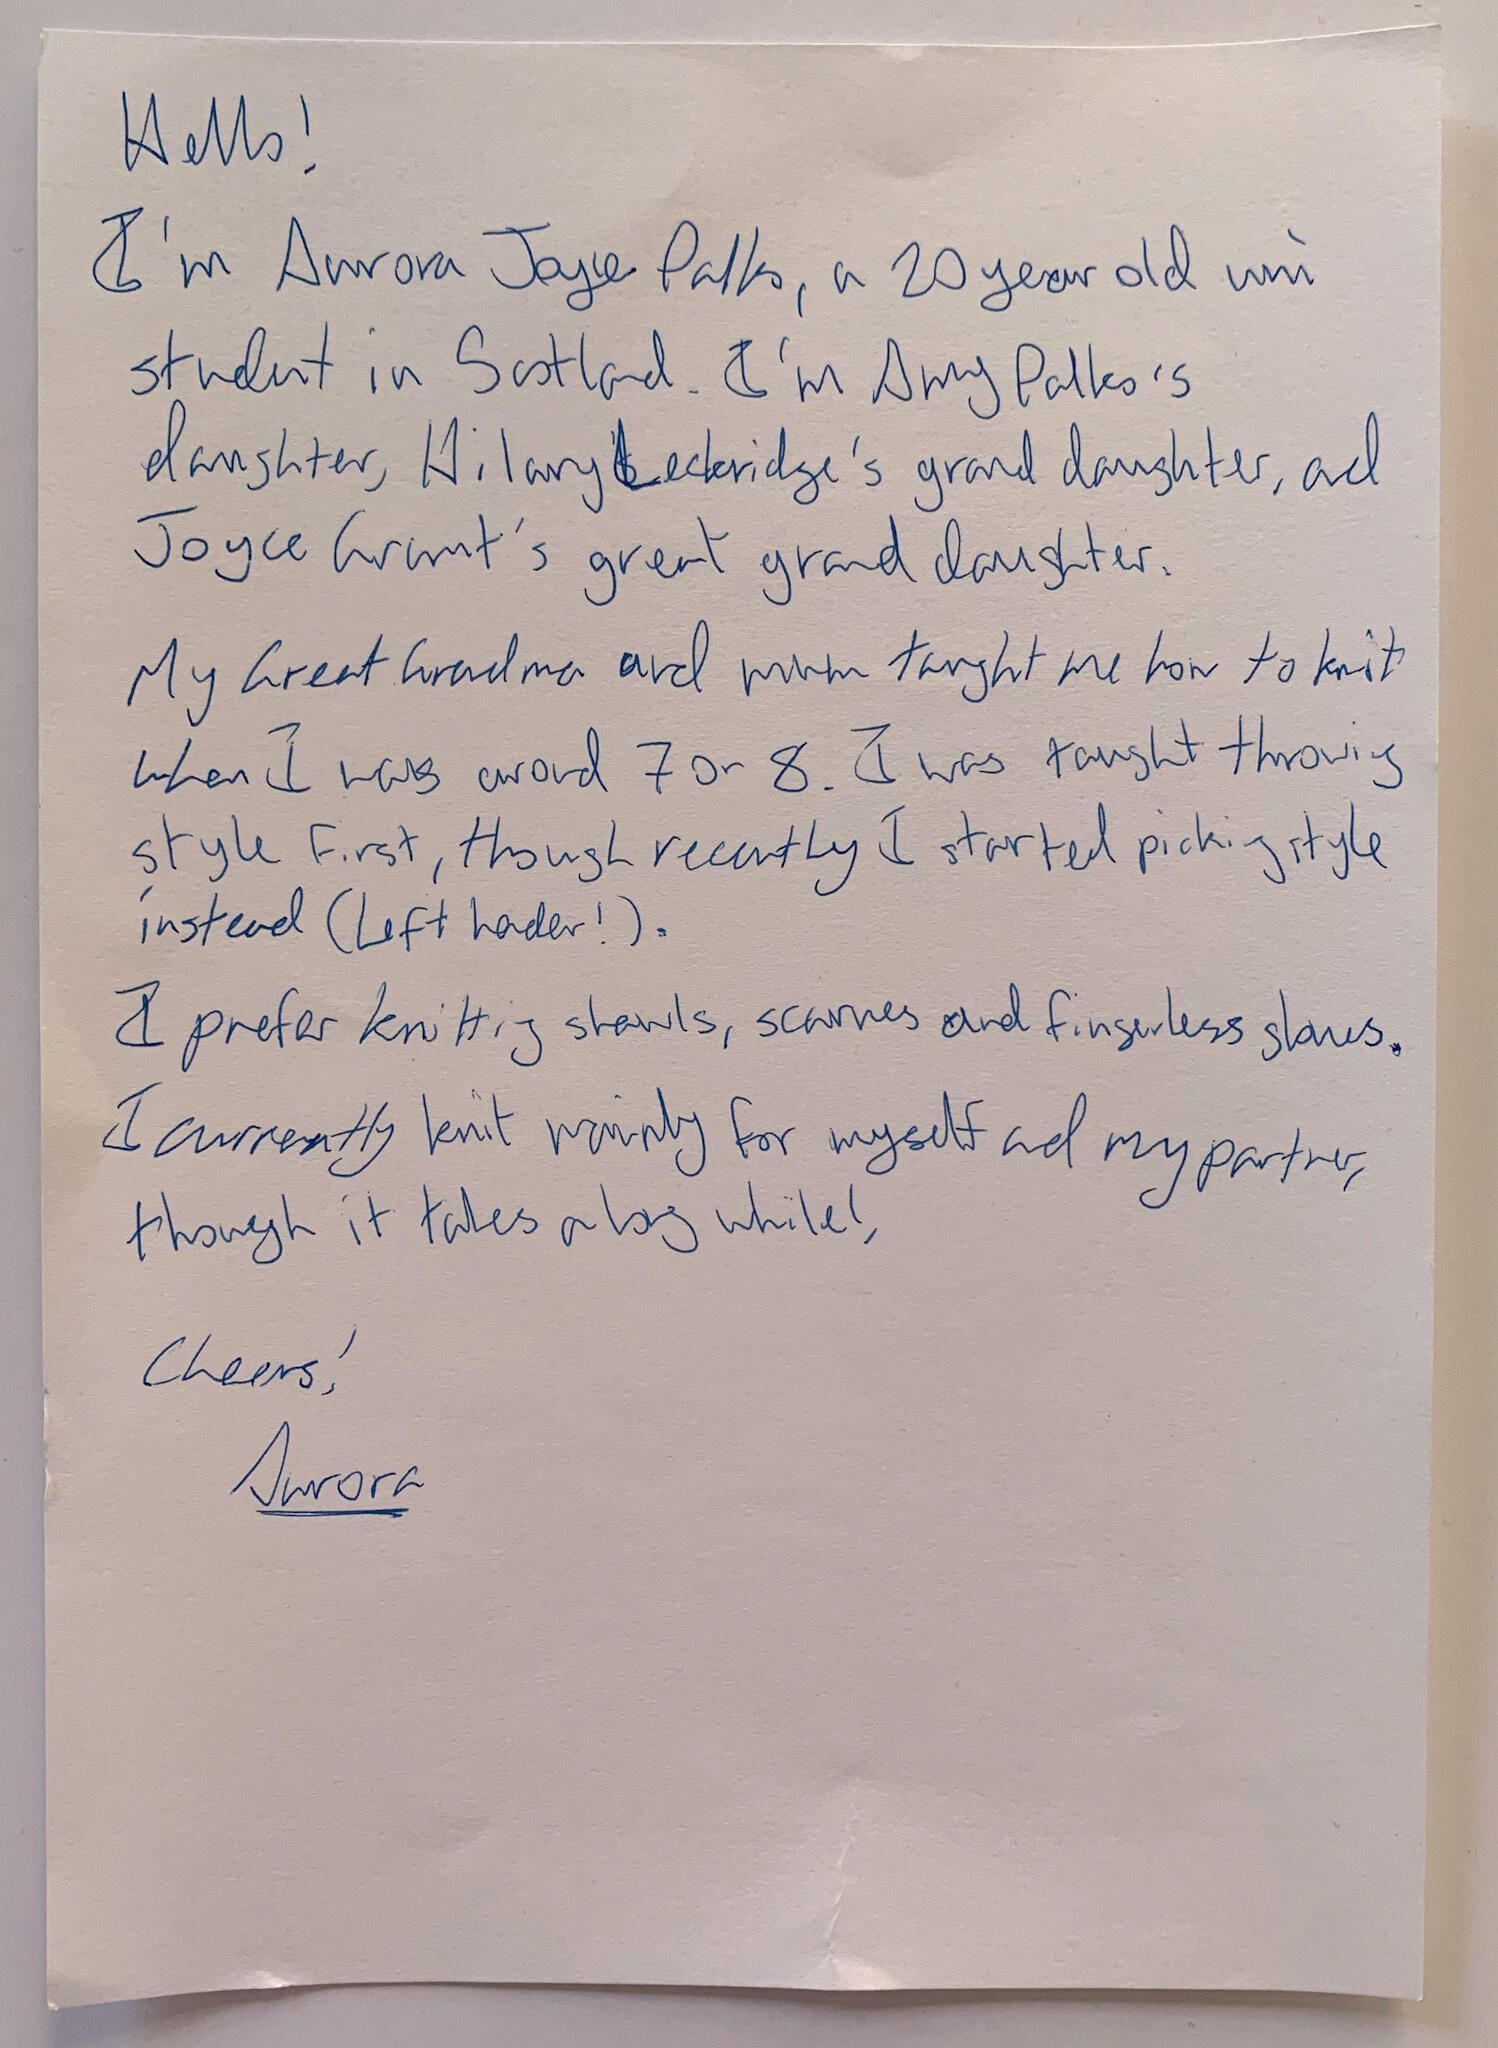 Hello!
I'm Aurora Joyce Palko, a 20 year old uni
student in Scotland. I'm Amy Palko's
daughter, Hilary Leckridge's grand daughter, and
Joyce Grant's great grand daughter.
My Great Grandma and mum taught me how to knit
when I was around 7 or 8. I was taught throwing
style first, though recently I started picking style
instead (Left hander!).
I prefer knitting shawls, scarves and fingerless gloves.
I currently knit mainly for myself and my partner,
though it takes a long while!
Cheers!
Aurora